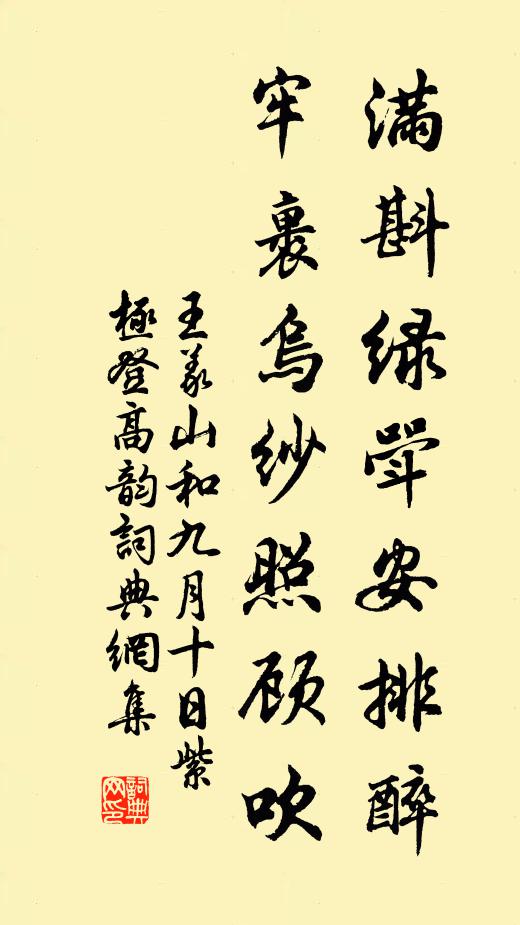 满斟绿斝安排醉
牢裹乌纱照顾吹
王义山和九月十日紫
极登高韵詞典網集
詞典网印